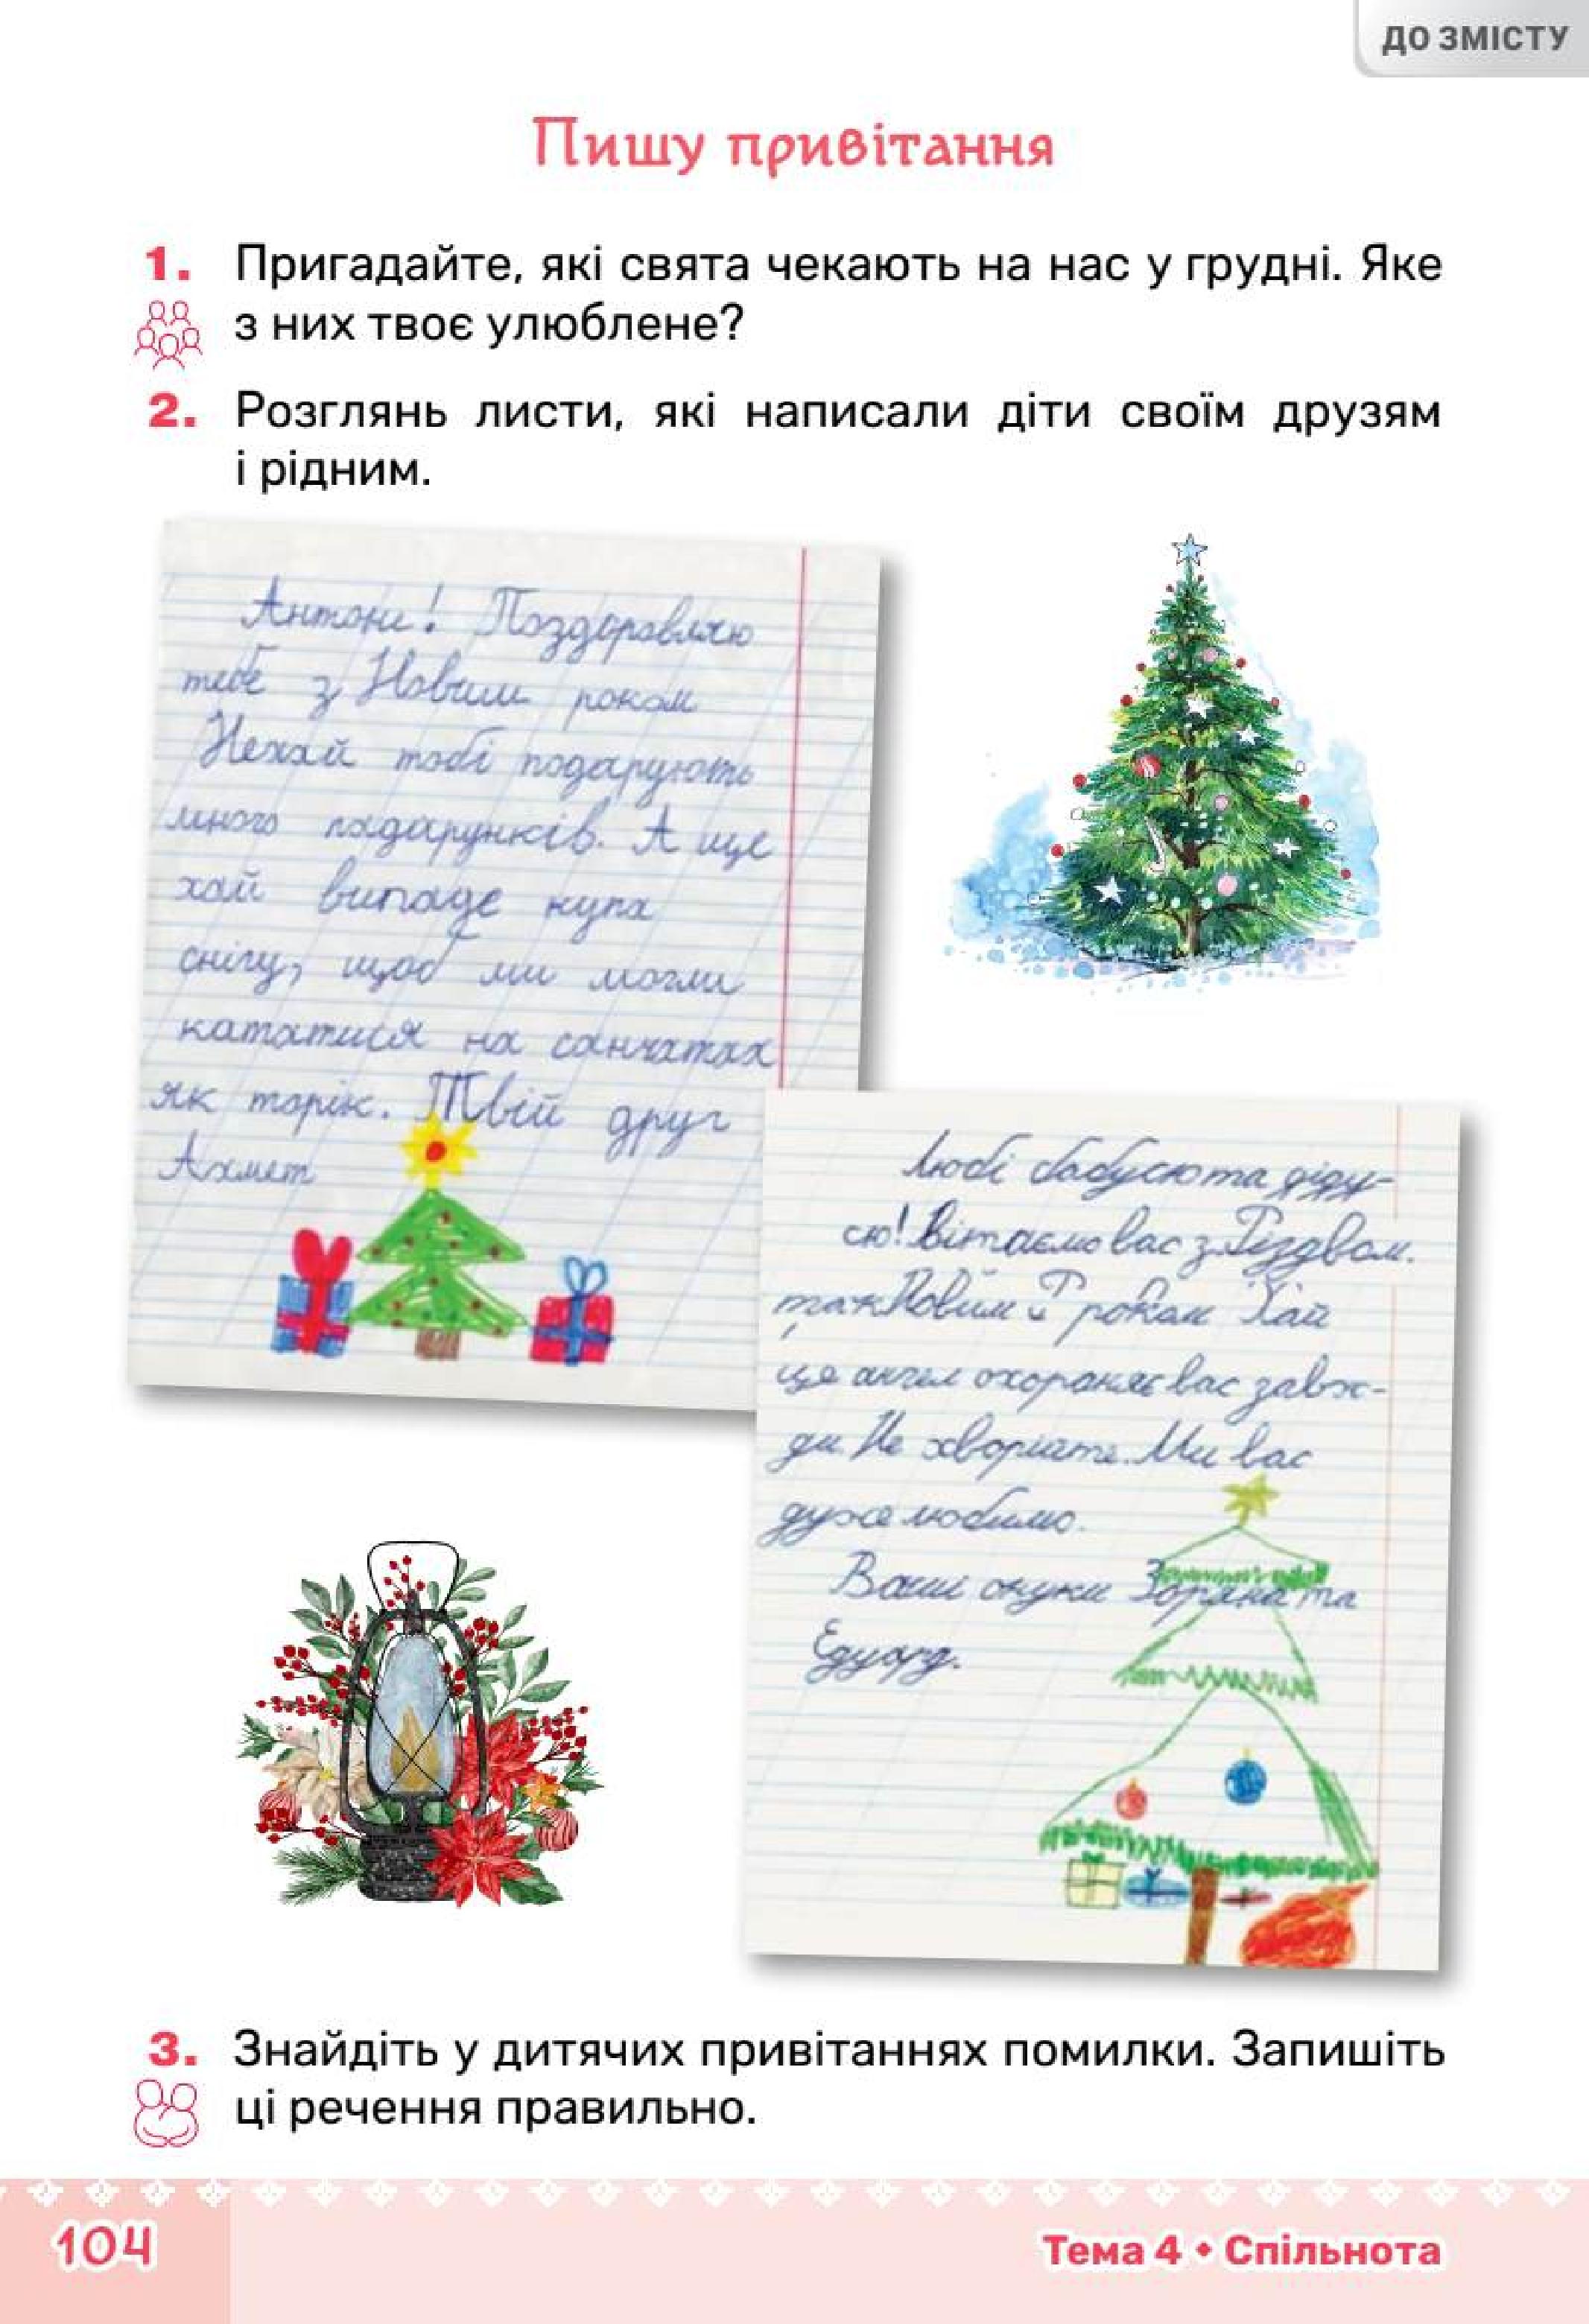 ДО ЗМІСТУ
Пишу привітання
1. Пригадайте, які свята чекають на нас у грудні. Яке
з них твоє улюблене?
2. Розглянь листи, які написали діти своїм друзям
і рідним.
Антоне! Поздоровляю
тебе з Новим роком
Нехай тобі подарують
много подарунків. А ще
хай випаде купа
снігу, щоб ми могли
кататися на санчатах
як торік. Твій друг
Ахмет
Любі бабусю та діду-
сю! Вітаємо вас з Різдвом.
та Новим Роком Хай
це ангел охороняє вас завж-
ди. Не хворійте. Ми вас
дуже любимо.
Ваші онуки Зоряна та
Едуард.
3. Знайдіть у дитячих привітаннях помилки. Запишіть
ці речення правильно.
104
Тема 4 • Спільнота